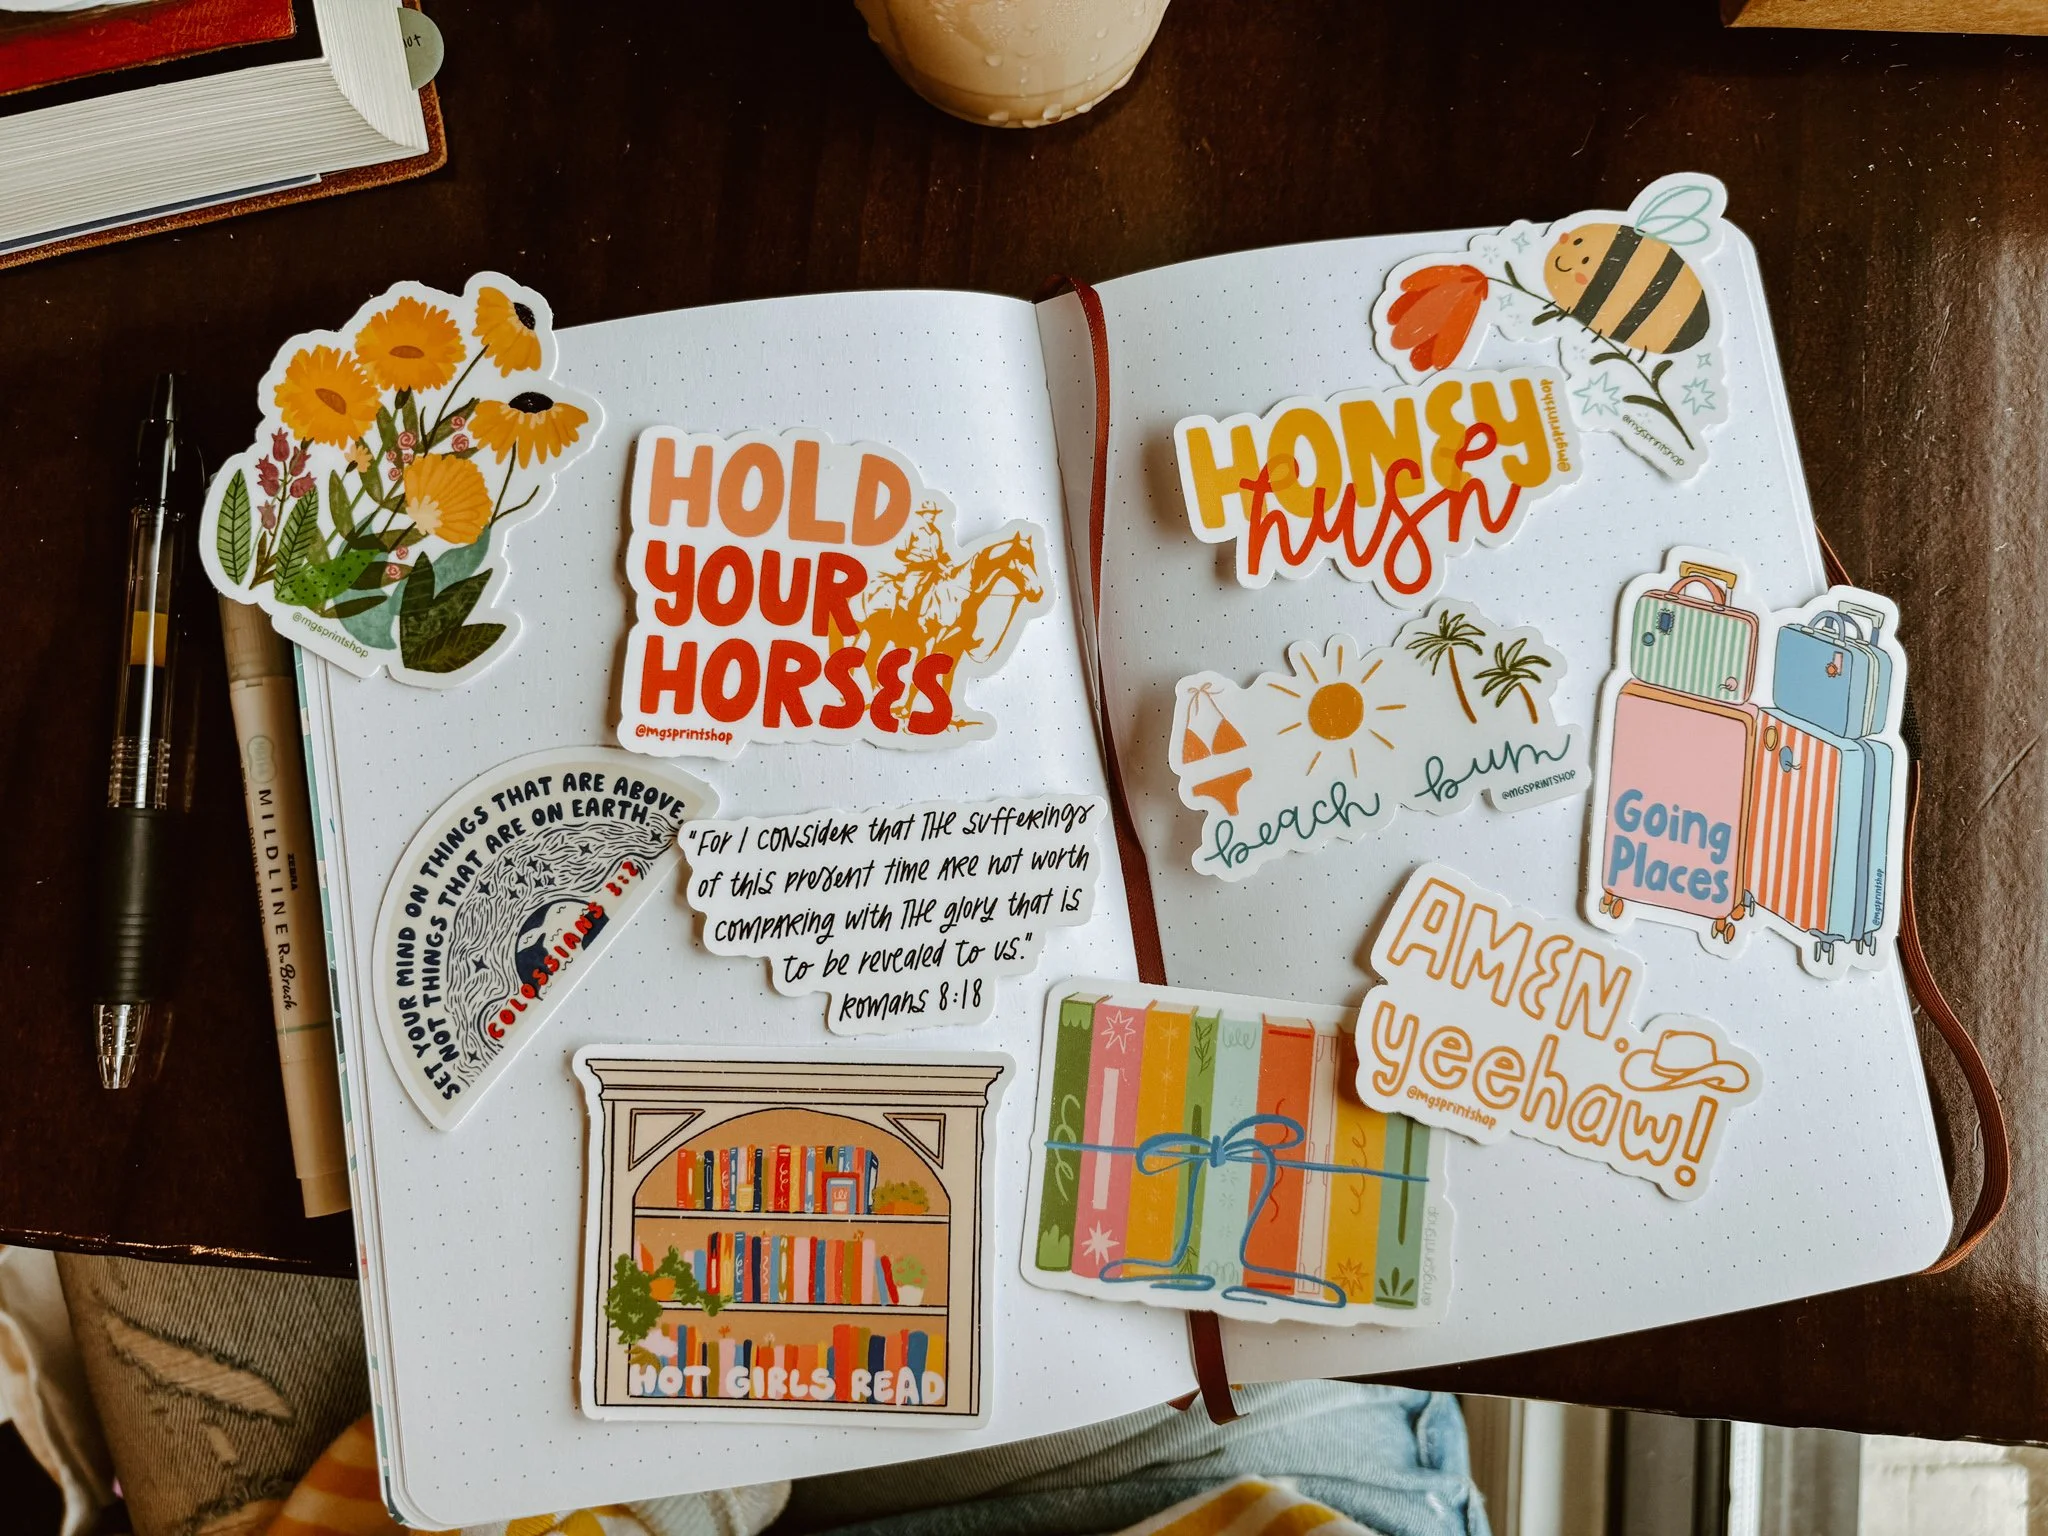 @mgsprintshop
HOLD
YOUR
HORSES
@mgsprintshop
SET YOUR MIND ON THINGS THAT ARE ABOVE,
NOT THINGS THAT ARE ON EARTH.
COLOSSIANS 3:2
"For I consider that the sufferings
of this present time are not worth
comparing with the glory that is
to be revealed to us."
Romans 8:18
HOT GIRLS READ
MILDLINER Brush
ZEBRA
@mgsprintshop
HONEY
hush
@mgsprintshop
beach bum
@MGSPRINTSHOP
Going
Places
@mgsprintshop
AMEN.
yeehaw!
@mgsprintshop
@mgsprintshop